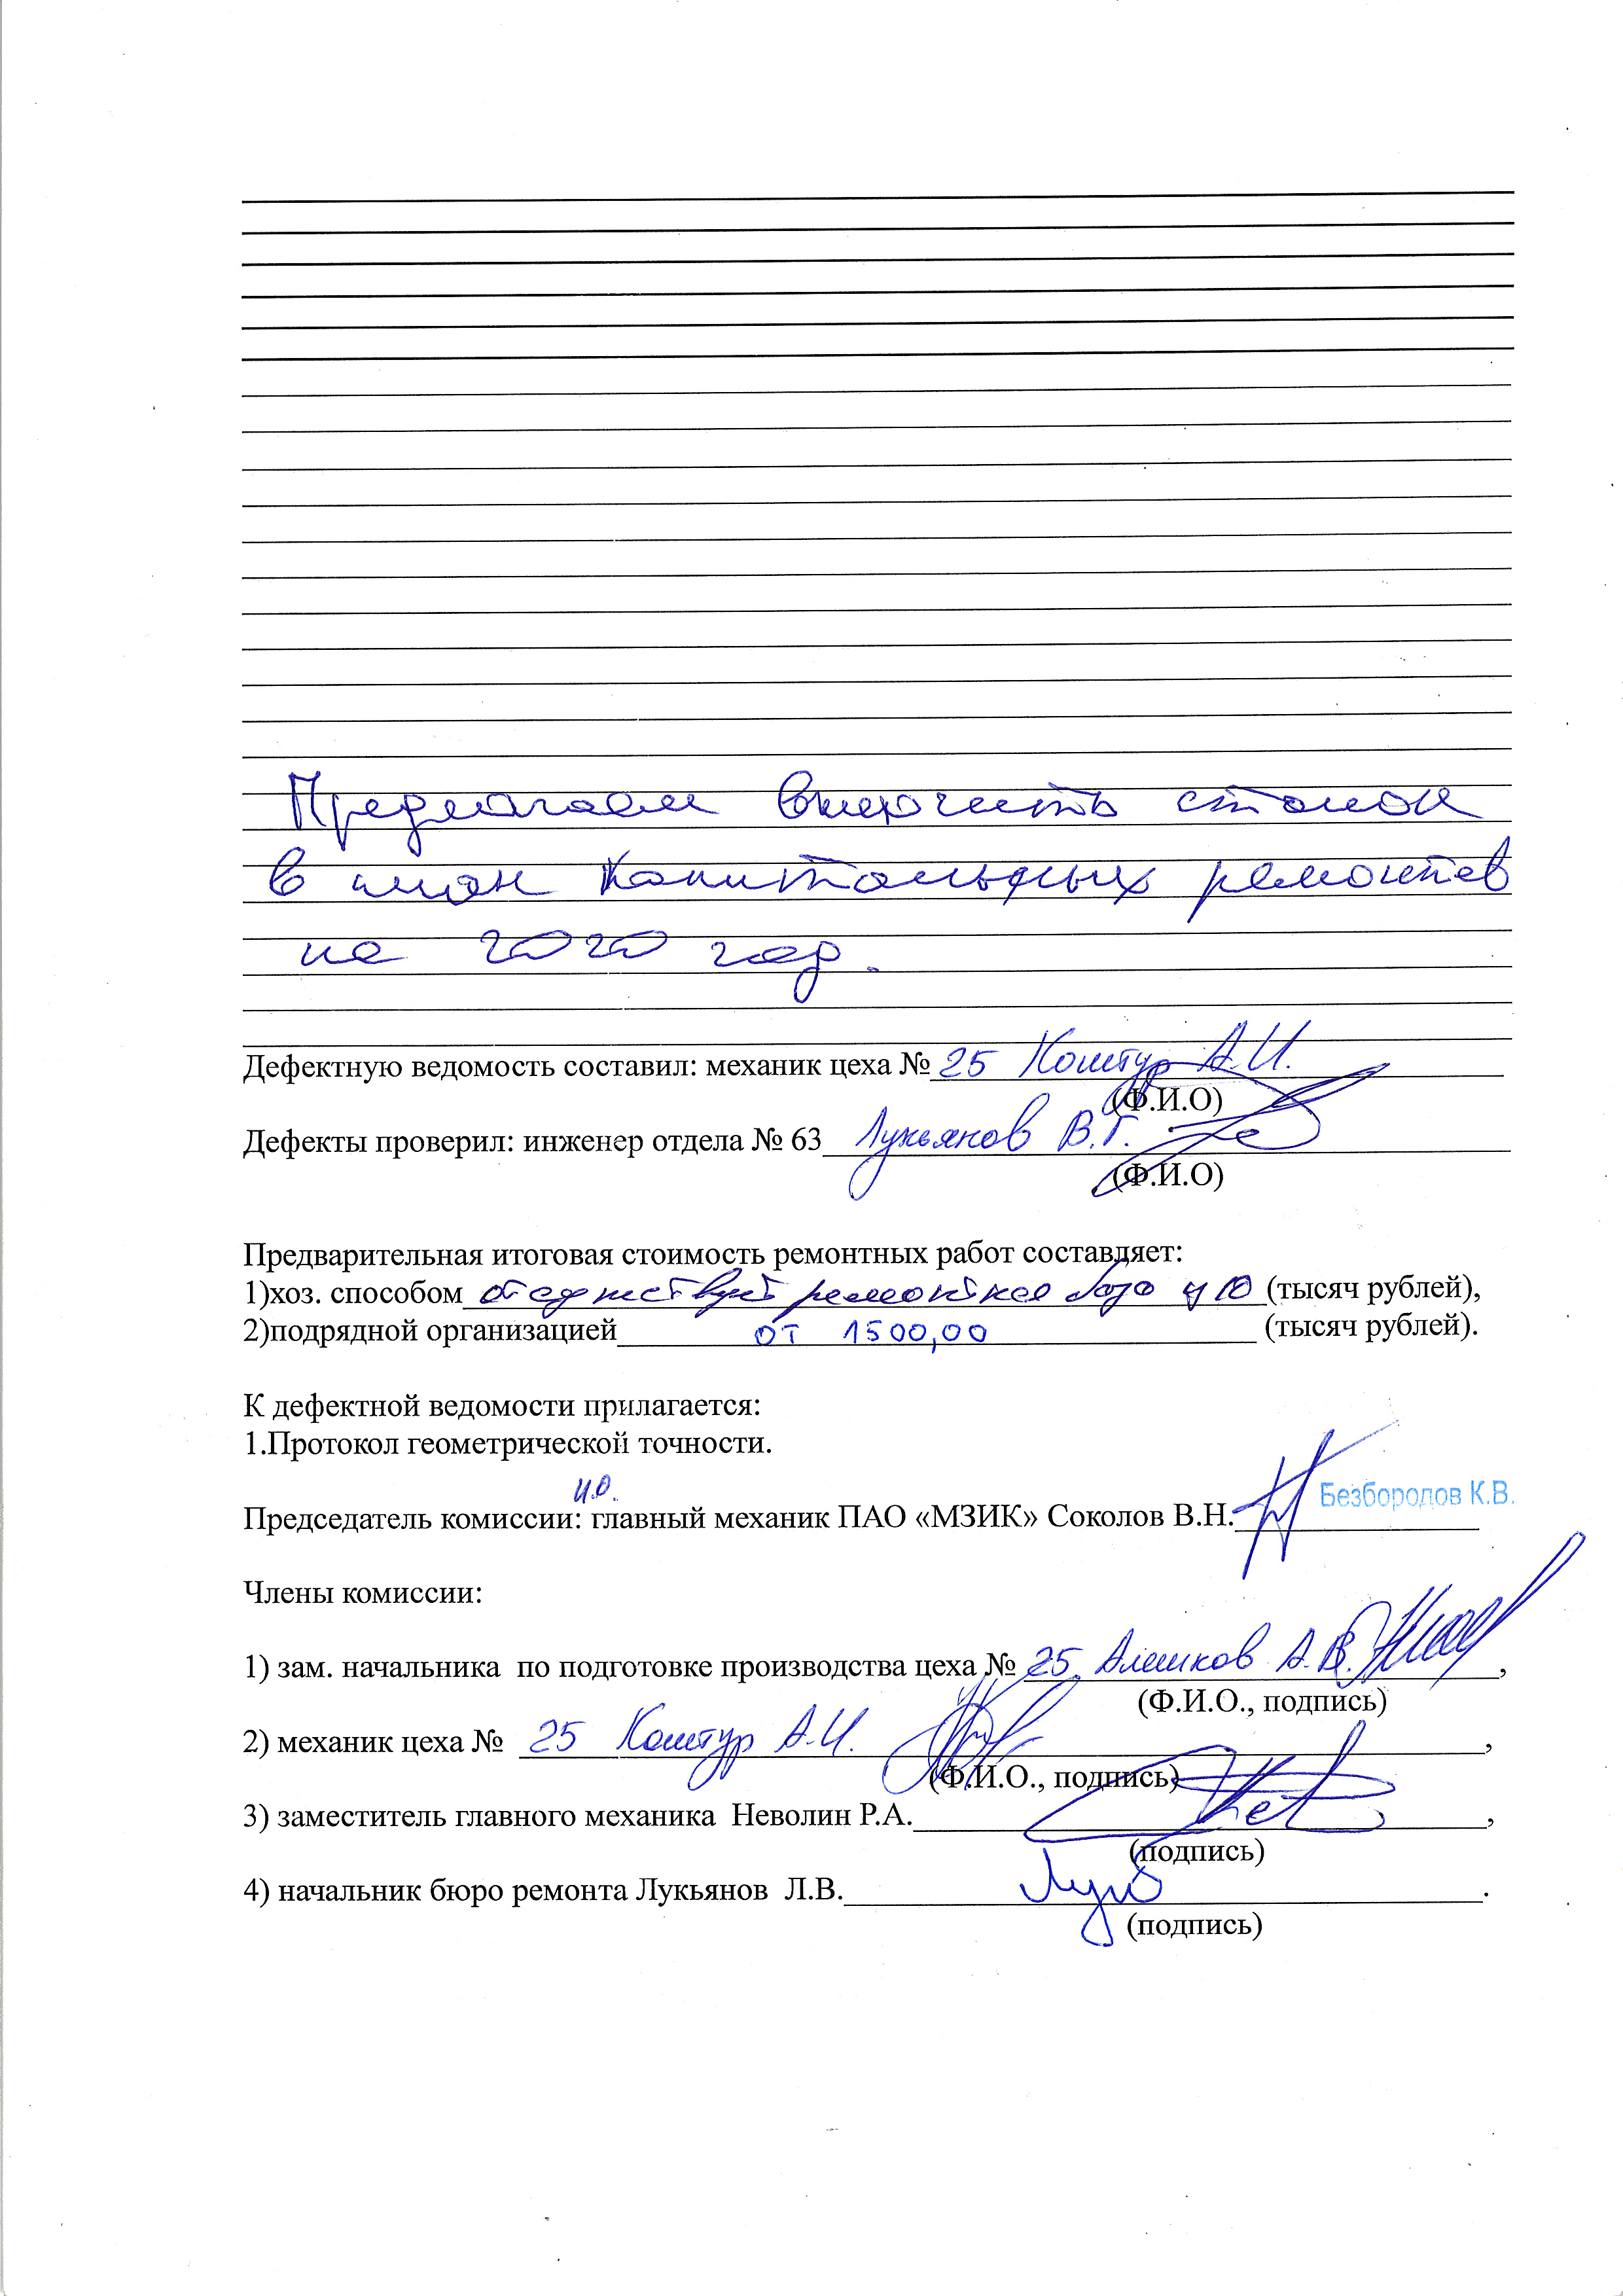 Предлагаем включить станок
в план капитальных ремонтов
на 2020 год.
Дефектную ведомость составил: механик цеха № 25 Коштур А.И.
(Ф.И.О)
Дефекты проверил: инженер отдела № 63 Лукьянов В.Г.
(Ф.И.О)
Предварительная итоговая стоимость ремонтных работ составляет:
1)хоз. способом отсутствует ремонтная база (тысяч рублей),
2)подрядной организацией от 1500,00 (тысяч рублей).
К дефектной ведомости прилагается:
1.Протокол геометрической точности.
и.о.
Председатель комиссии: главный механик ПАО «МЗИК» Соколов В.Н. Безбородов К.В.
Члены комиссии:
1) зам. начальника по подготовке производства цеха № 25 Алешков А.В.,
(Ф.И.О., подпись)
2) механик цеха № 25 Коштур А.И.,
(Ф.И.О., подпись)
3) заместитель главного механика Неволин Р.А.,
(подпись)
4) начальник бюро ремонта Лукьянов Л.В.
(подпись)